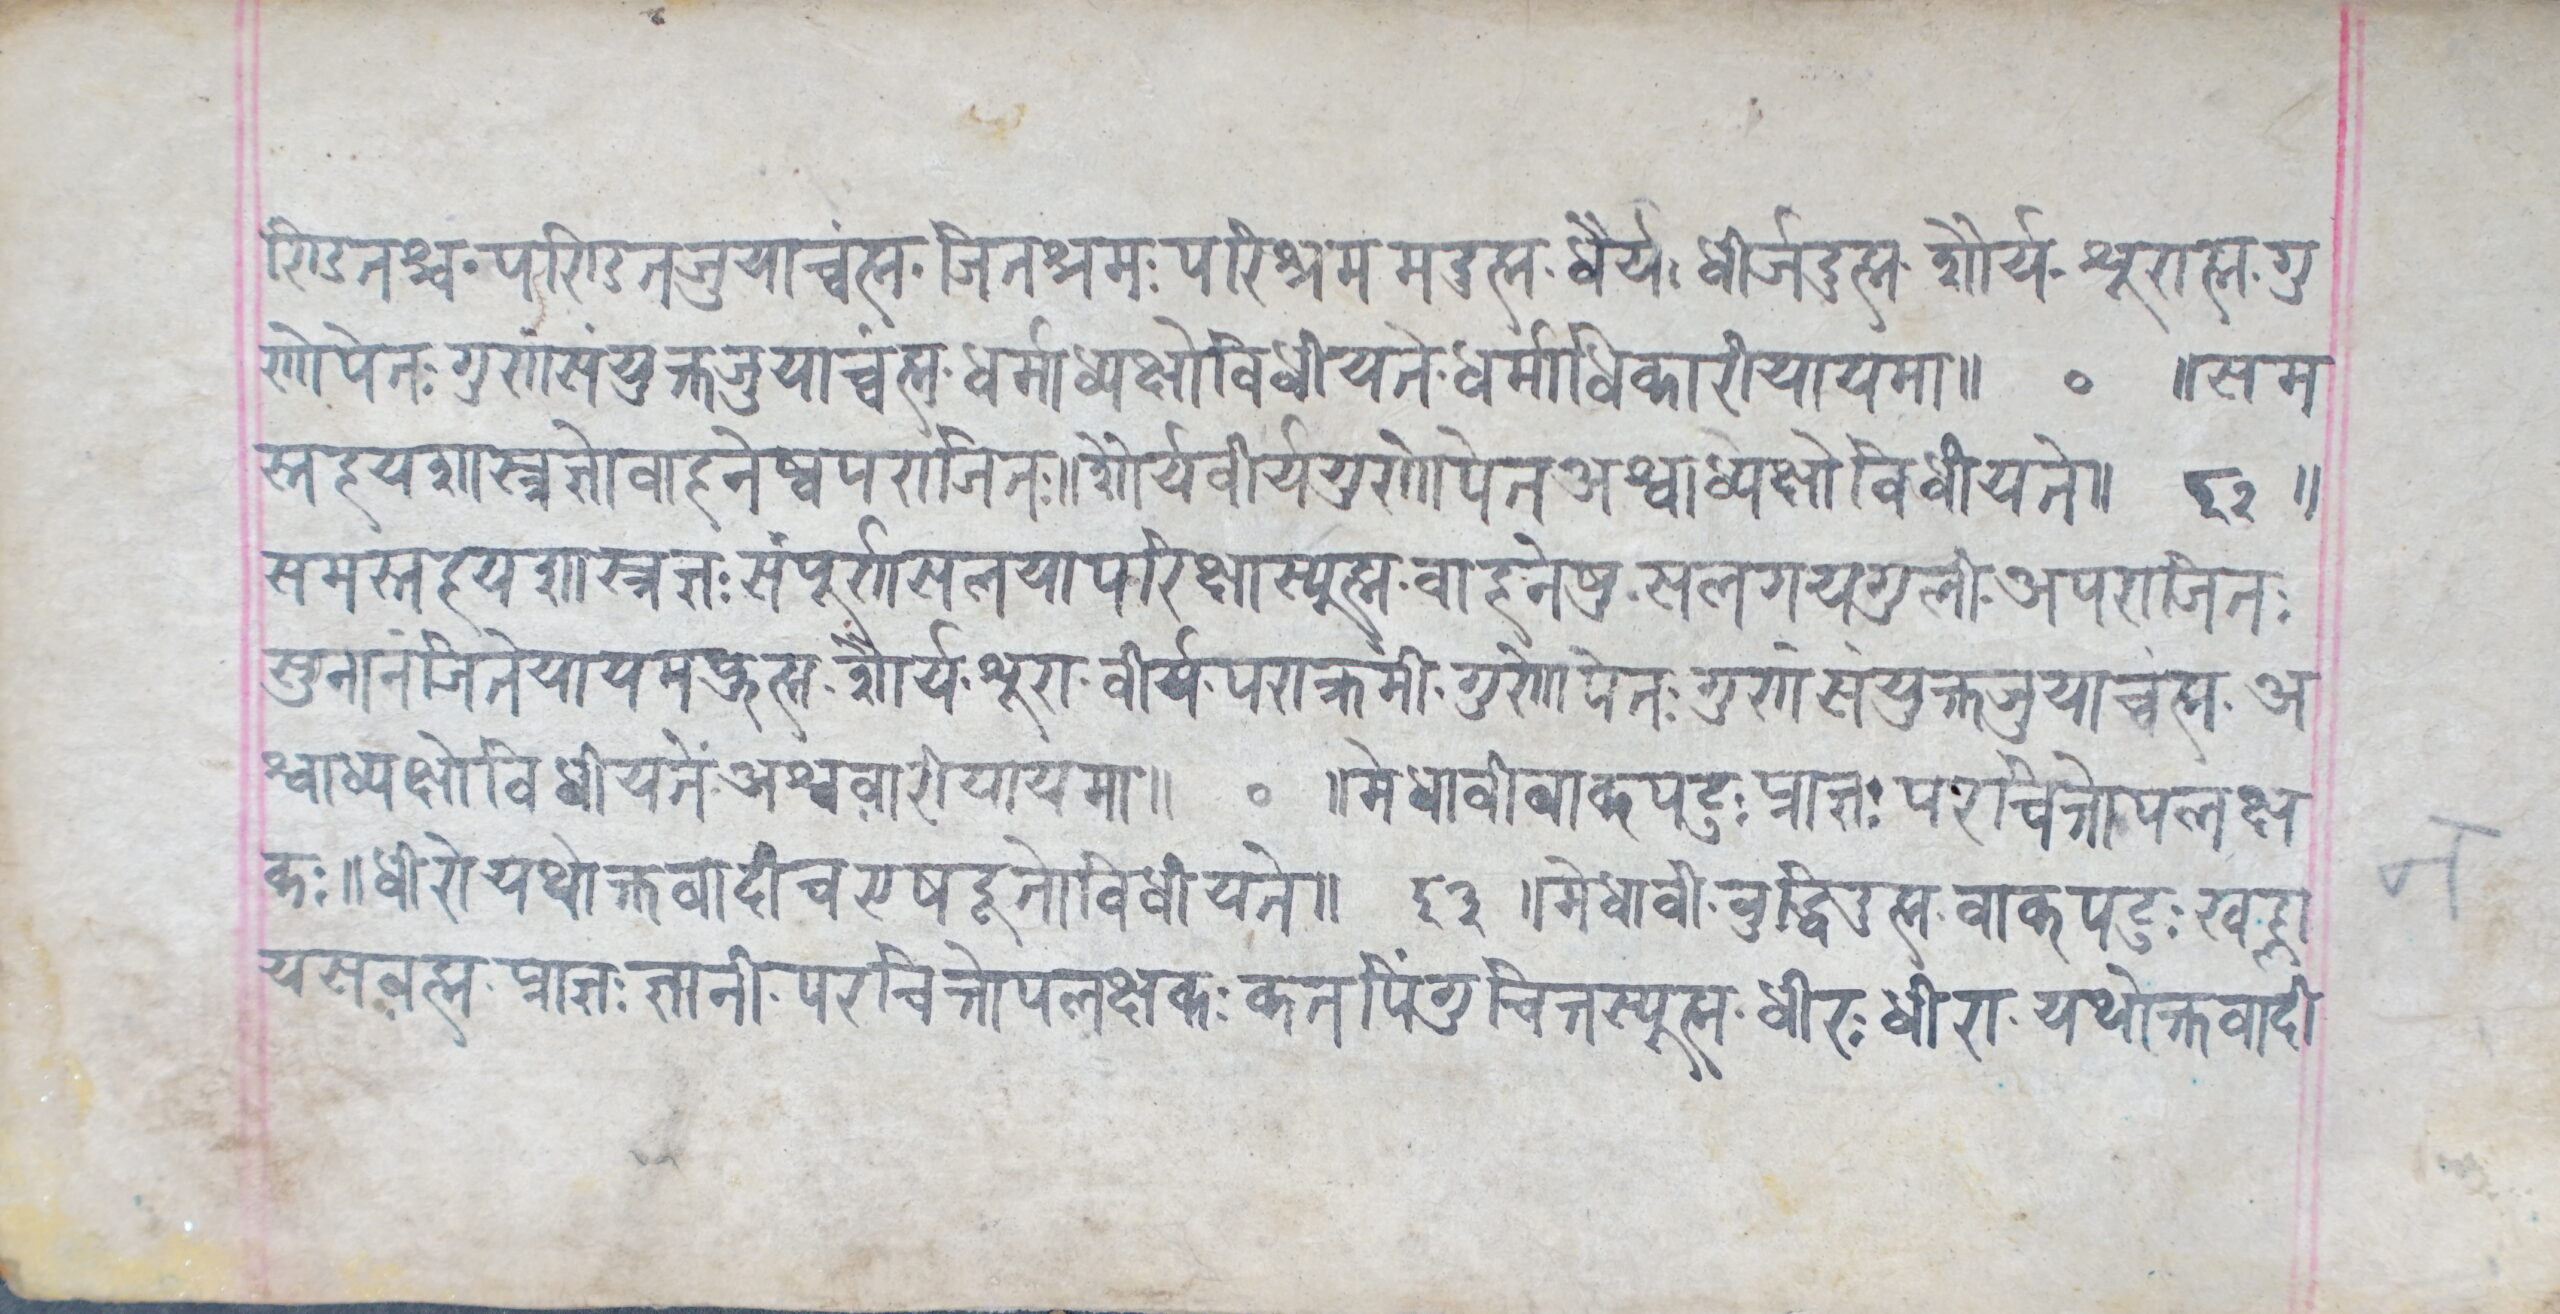 ण्डितश्च· पण्डितजुयाच्वंह्म· जितश्रमः परिश्रम मदुह्म· धैर्य· धीर्जदुह्म· शौर्य· श्थूराह्म· गु
णोपेतः गुणसंयुक्तजुयाच्वंह्म· धर्माध्यक्षोविधीयते· धर्माधिकारीयायमा॥ ० ॥सम
स्तहयशास्त्रज्ञोवाहनेष्वपराजितः॥शौर्यवीर्यगुणोपेतअश्वाध्येक्षोविधीयते॥ ६२ ॥
समस्तहयशास्त्रज्ञः संपूर्णसलयापरिक्षास्यूह्म· वाहनेषु· सलगयगुली· अपराजितः
सुनानंजितेयायमफुह्म· शौर्य· श्थूरा· वीर्य· पराक्रमी· गुणोपेतः गुणसंयुक्तजुयाच्वंह्म· अ
श्वाध्यक्षोविधीयते· अश्ववारीयायमा॥ ० ॥मेधावीवाकपटुः प्राज्ञः परचित्तोपलक्ष
कः॥धीरोयथोक्तवादीचएषदूतोविधीयते॥ ६३ ॥मेधावी· बुद्धिदुह्म· वाकपटुः खह्ला
यसवह्म· प्राज्ञः ज्ञानी· परचित्तोपलक्षकः कतपिंगुचित्तस्यूह्म· धीरः धीरा· यथोक्तवादी